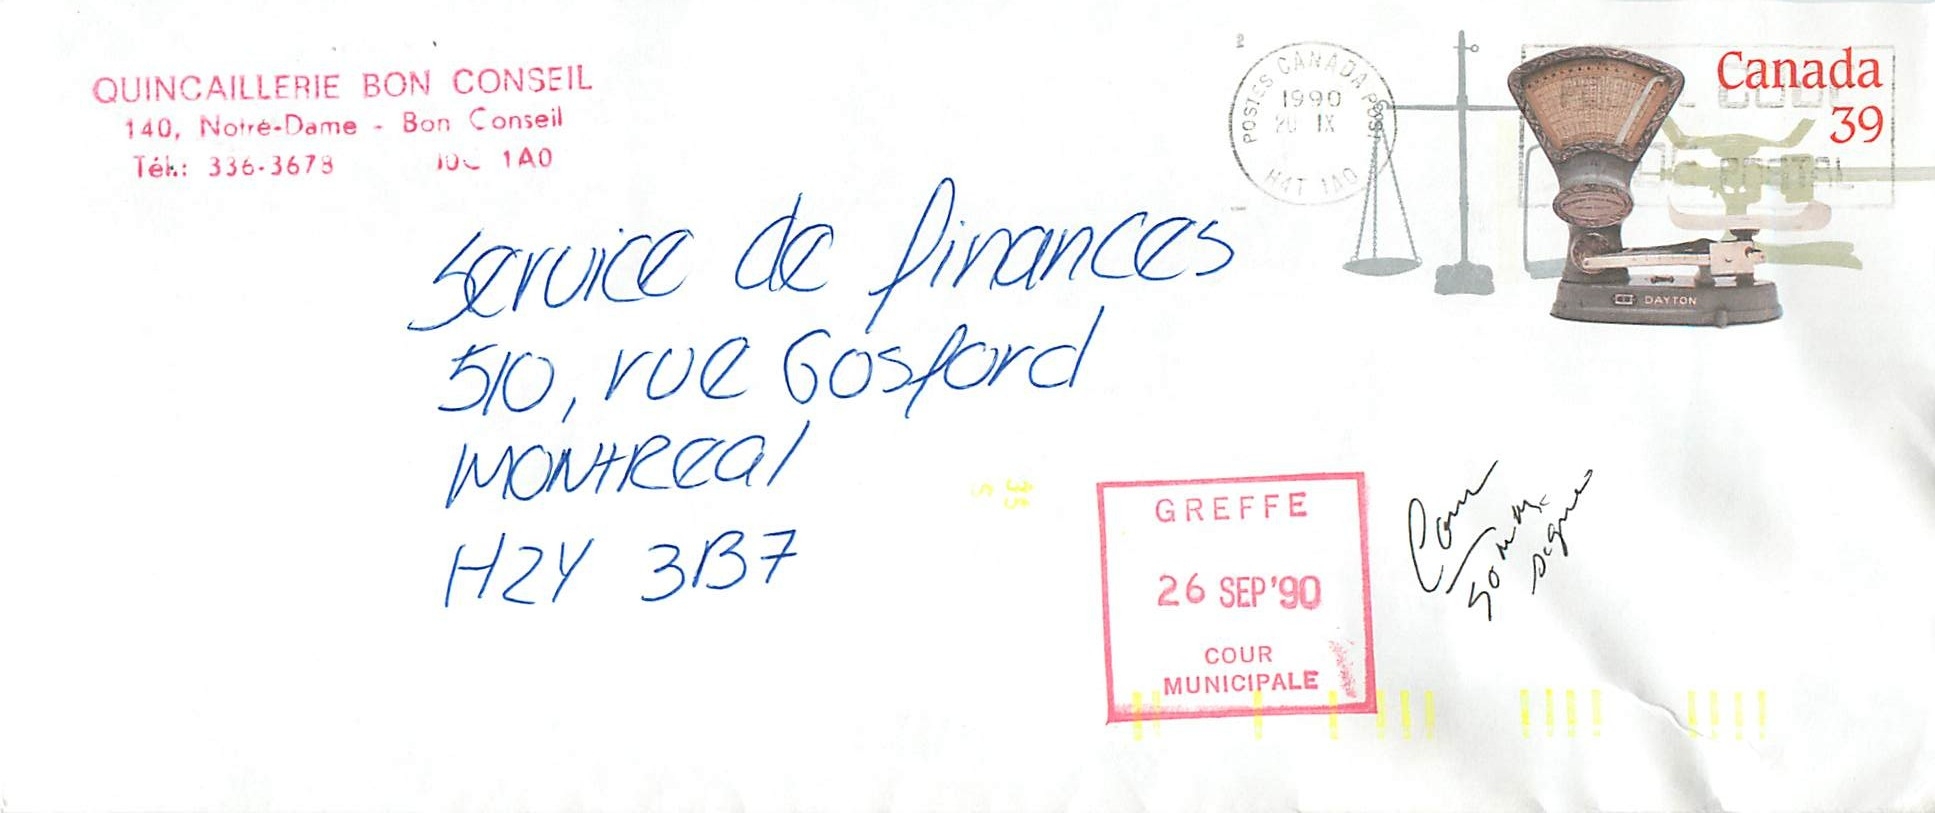 QUINCAILLERIE BON CONSEIL
140, Notre-Dame - Bon Conseil
Tél.: 336-3678 J0C 1A0
POSTES CANADA POST
1990
20 IX
H4T 1A0
Canada
39
DAYTON
Service de finances
510, rue Gosford
MONTReal
H2Y 3B7
GREFFE
26 SEP '90
COUR
MUNICIPALE